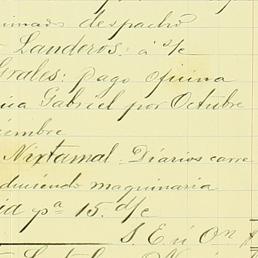 despacho
Landeros: á d/c
Grales: Pago oficina
Gabriel por Octubre
iembre
Nixtamal. Diarios carre
duciendo maquinaria
ia pª 15. d/c
S. E ú On $